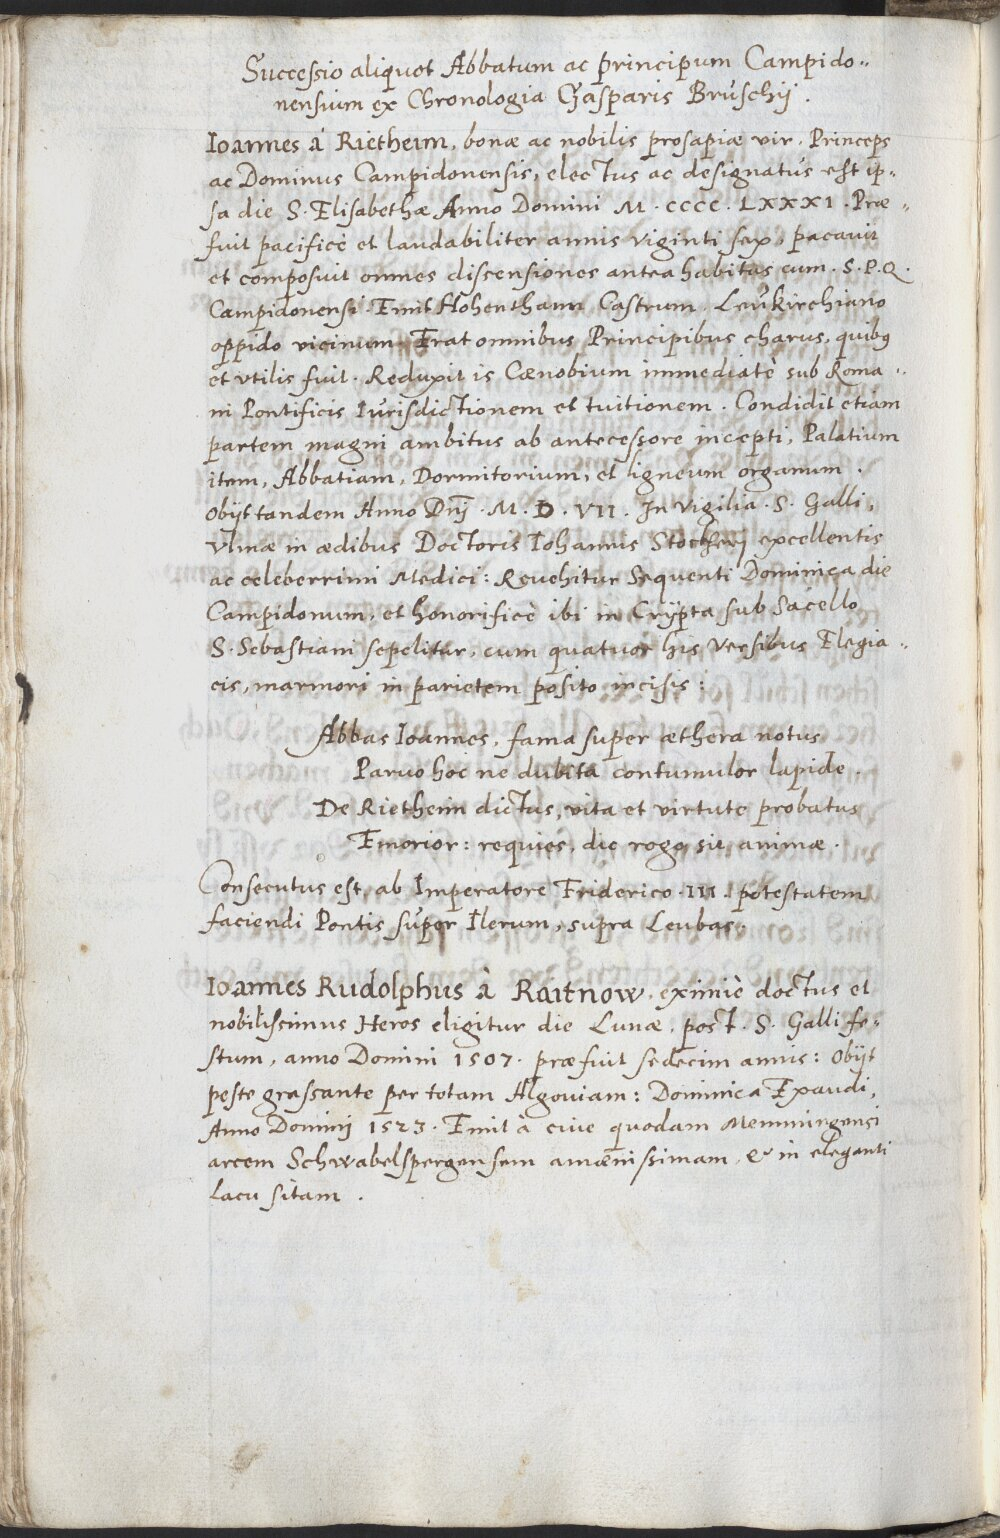 Successio aliquot Abbatum ac principum Campido..
nensium ex Chronologia Gasparis Bruschij.
Ioannes à Rietheim, bonæ ac nobilis prosapiæ vir, Princeps
ac Dominus Campidonensis, electus ac designatus est ip..
sa die S. Elisabethæ Anno Domini M. CCCC. LXXXI. Præ..
fuit pacificè et laudabiliter annis viginti sex, pacavit
et composuit omnes dissensiones antea habitas cum . S. P. Q.
Campidonensi. Emit Hohenthann Castrum, Leukirchiano
oppido vicinum. Erat omnibus Principibus charus, quibus
et vtilis fuit. Reduxit is Cœnobium immediatè sub Roma..
ni Pontificis Iurisdictionem et tuitionem. Condidit etiam
partem magni ambitus ab antecessore incepti, Palatium
item, Abbatiam, Dormitorium, et ligneum organum.
Obijt tandem Anno Dnj. M. D. VII. In Vigilia. S. Galli,
Vlmæ in ædibus Doctoris Iohannis excellentis
ac celeberrimi Medici: Revehitur Sequenti Dominica die
Campidonum, et honorificè ibi in Crypta sub Sacello
S. Sebastiani sepelitur, cum quatuor his Versibus Elegia..
cis, marmori in parietem posito incisis:
Abbas Ioannes, fama super æthera notus
Paruo hoc ne dubita contumulor lapide.
De Rietheim dictus, vita et virtute probatus
Emorior: requies, dic rogo, sit animæ.
Consecutus est, ab Imperatore Friderico. III. potestatem
faciendi Pontis super Ilerum, supra Leubas.
Ioannes Rudolphus à Raitnow, eximiè doctus et
nobilissimus Heros eligitur die Lunæ, post. S. Galli fe..
stum, anno Domini 1507. præfuit sedecim annis: Obijt
peste grassante per totam Algoviam: Dominica Exaudi,
Anno Dominj 1523. Emit à cive quodam Memmingensi
arcem Schwabelspergensem amœnissimam, & in eleganti
lacu sitam.